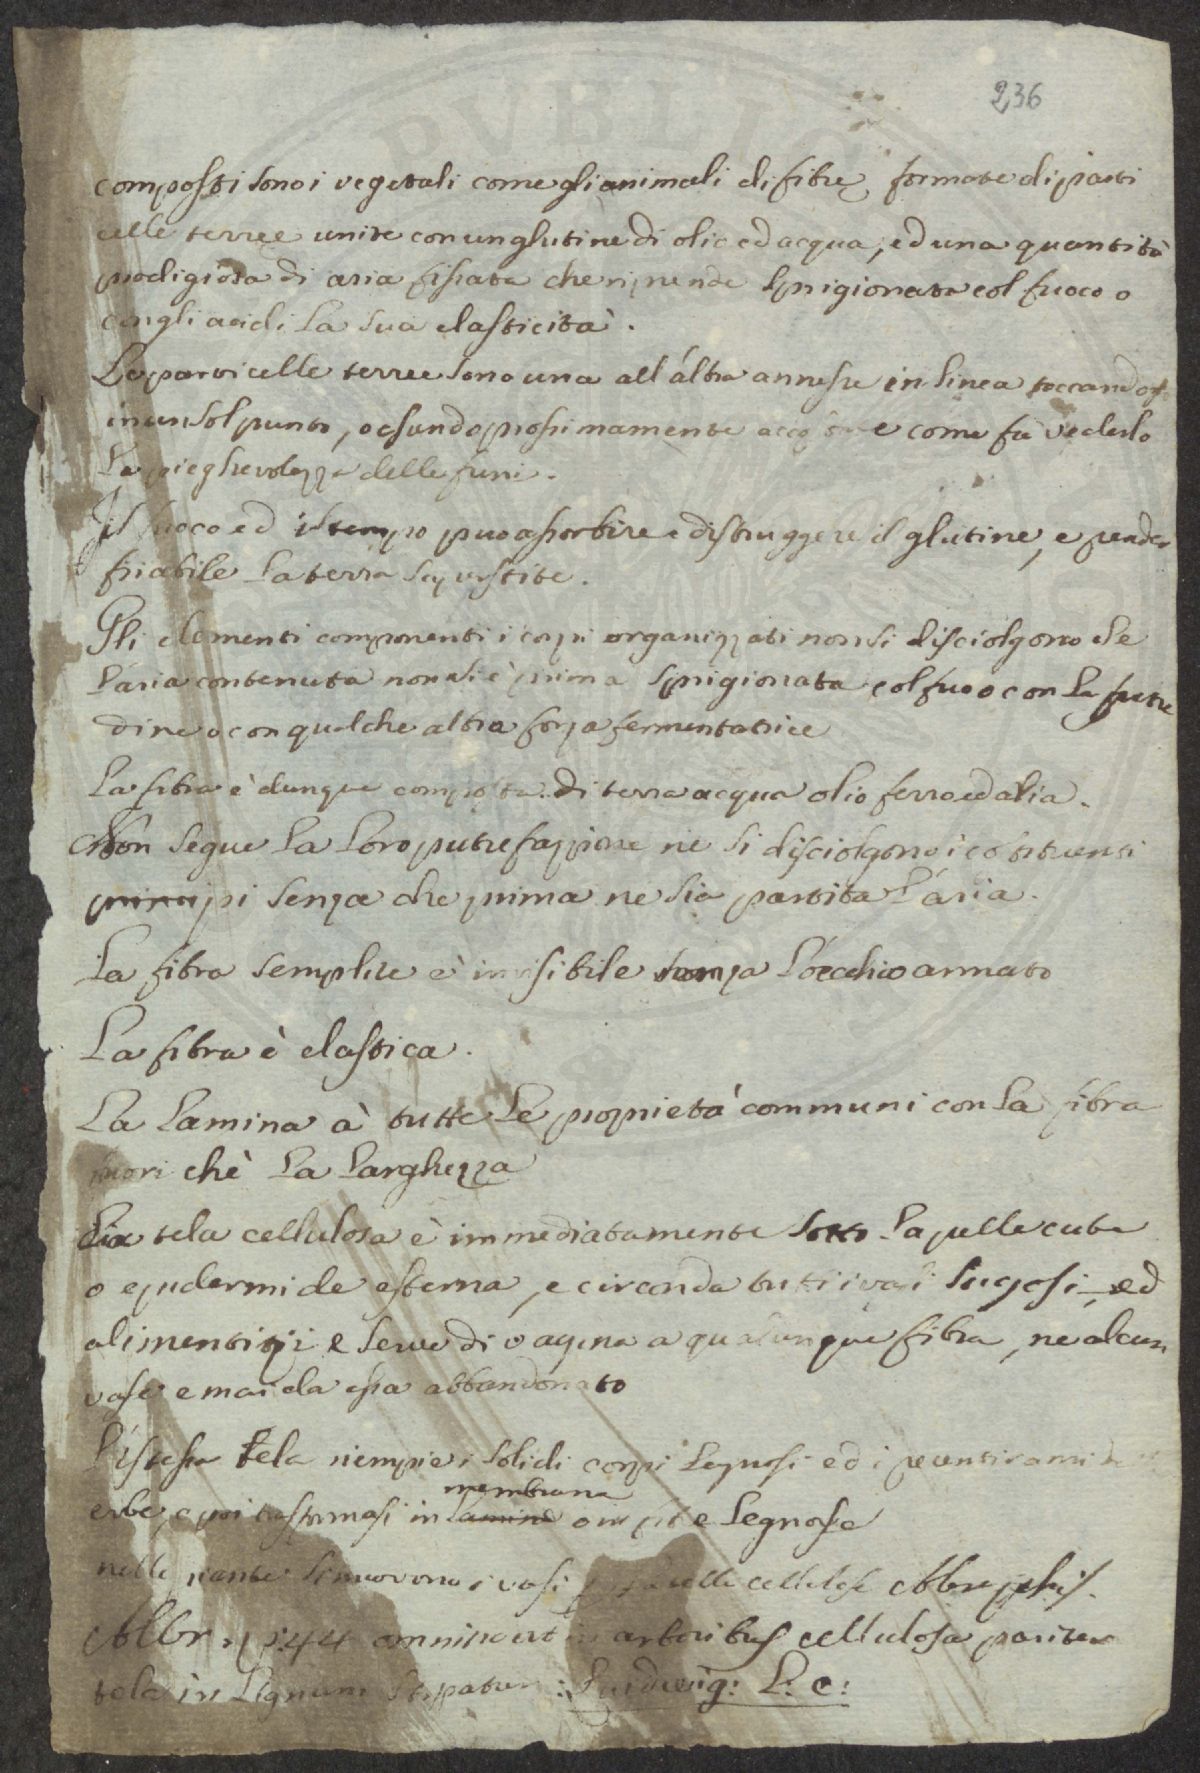 236
composti sono i vegetali come gli animali di fibre, formate di parti
celle terree unite con un glutine di olio ed acqua, ed una quantità
prodigiosa di aria fissata che riprende sprigionata col fuoco o
con gli acidi la sua elasticità.
Le particelle terree sono una all'áltra annesse in linea toccandosi
in un sol punto, o essendo prossimamente come fà vederlo
la pieghevolezza delle funi.
Il fuoco ed il tempo puo assorbire e distruggere il glutine, e render
friabile la terra superstite.
Gli elementi componenti i corpi organizzati non si disciolgono se
l'ária contenuta non si è prima sprigionata col fuo o con la putre
dine o con qualche altra forza fermentatrice
La fibra è dunque composta di terra acqua olio ferro ed aria.
Non segue la loro putrefazzione ne si disciolgono i costituenti
principi senza che prima ne sia partita l'ária.
La fibra semplice è invisibile senza l'ócchio armato
La fibra è elastica.
La lamina à tutte le proprietà communi con la fibra
fuori chè la larghezza
La tela cellulosa è immediatamente sotto la pelle cute
o epidermide esterna, e circonda tutti i vasi sugosi, ed
alimentizi e serve di vagina a qualunque fibra, ne alcun
vase e mai da essa abbandonato
L'ístessa tela riempie i solidi corpi legnosi ed i recenti rami
erbe, e poi trasformasi in lamine ossee e legnose
membrana
nelle piante si muovono i vasi delle cellulose Mbr. phis.
Mbr. p. 44 omnino ut in arboribus cellulosa pariter
tela in lignum stipatur: Ludwig: L: c: